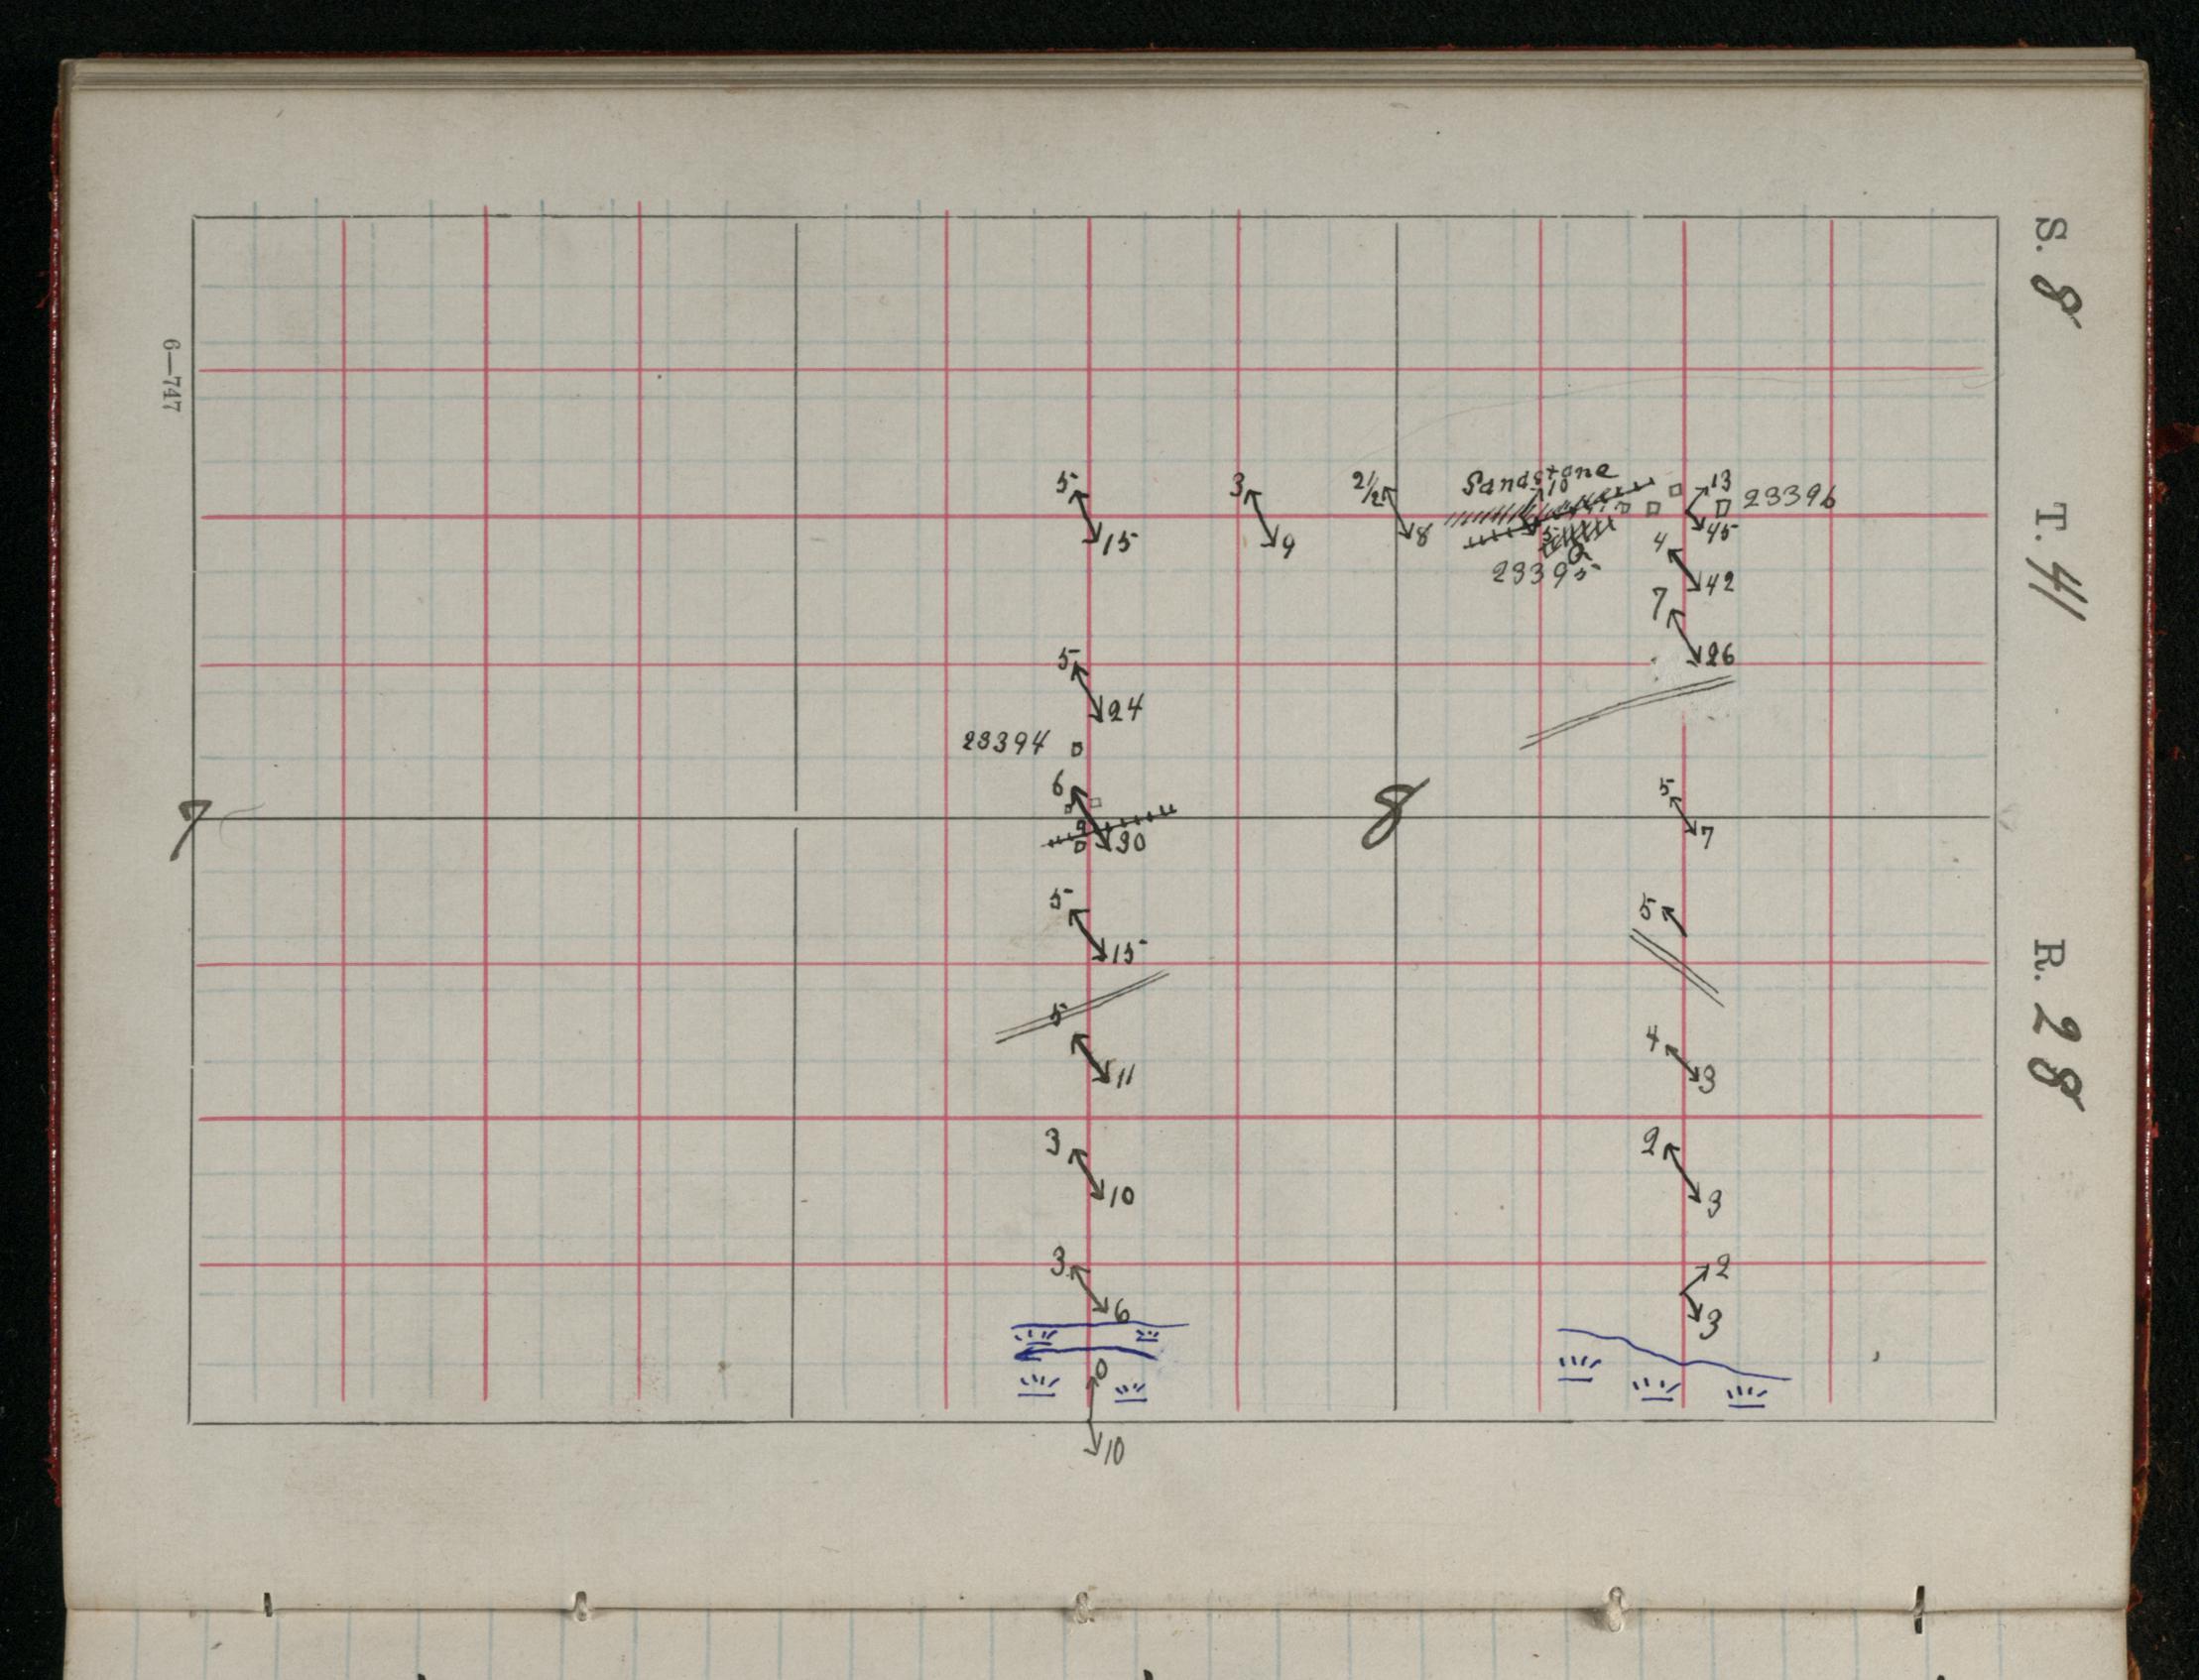 S. 8 T. 41 R. 28
6—747
Sandstone
5 3 2½ 10 13 23396
15 9 8 5 45
4
23395 42
7
5 26
24
23394
6 5
7 8 7
30
5 5
15
5
4
11 3
3 2
10 3
3 2
6 3
0
10